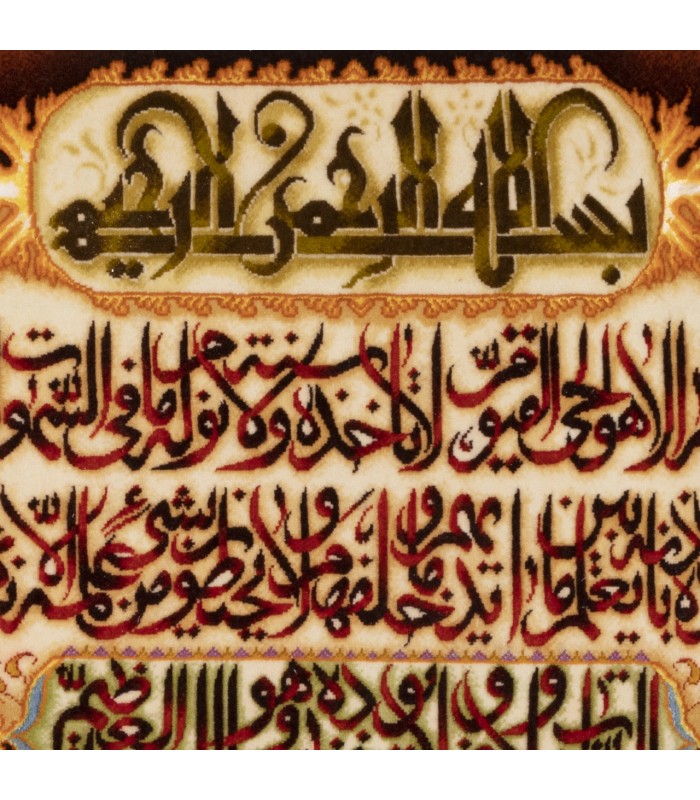 بسم الله الرحمن الرحيم
الا هو الحي القيوم لا تاخذه سنة ولا نوم له ما في السموات
باذنه يعلم ما بين ايديهم وما خلفهم ولا يحيطون بشئ من علمه الا
ولا يوده وهو العظيم